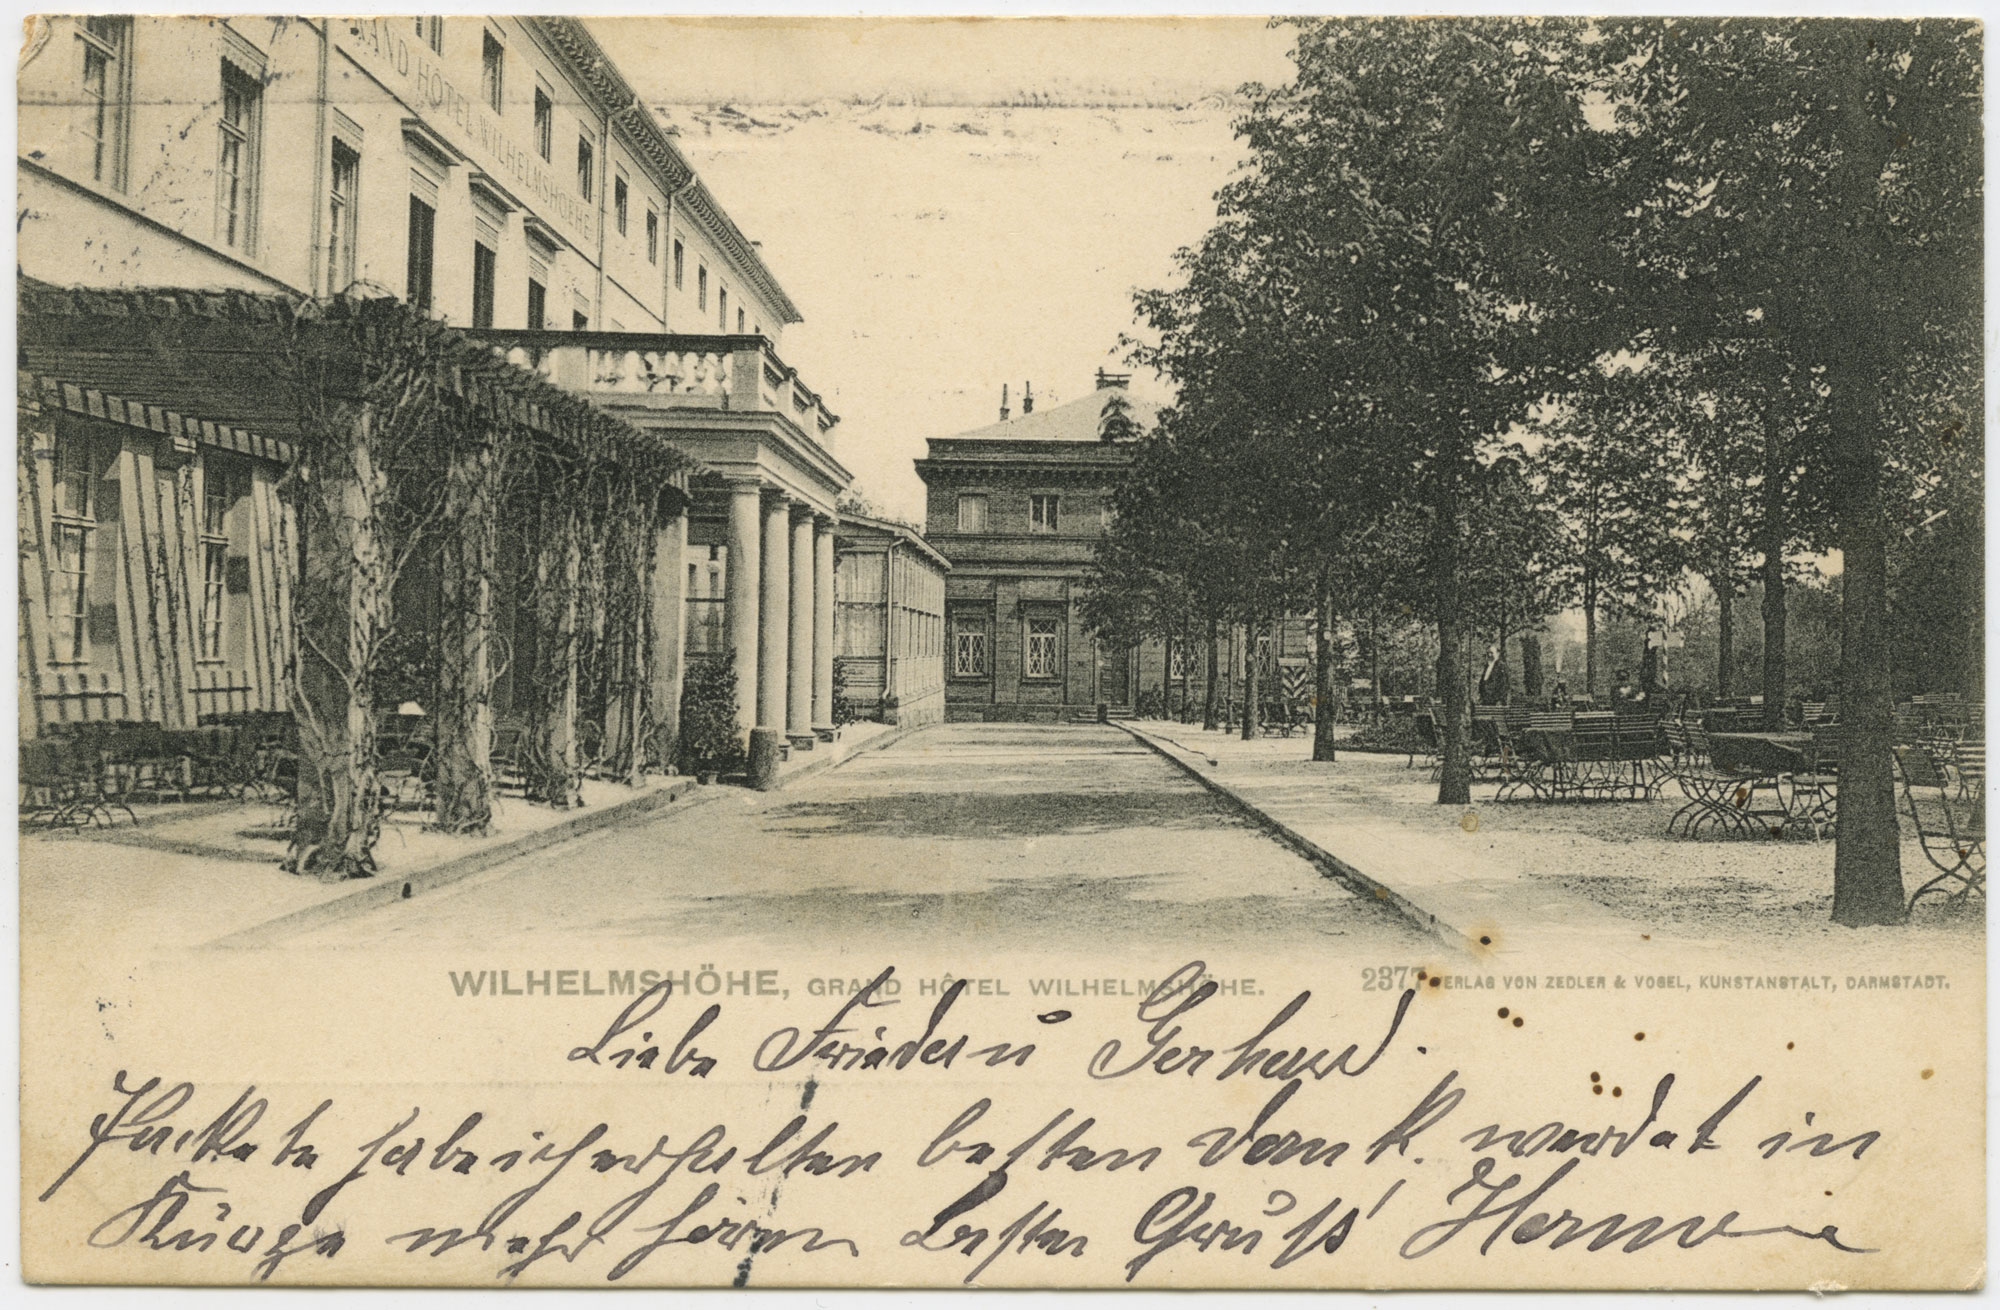 GRAND HÔTEL WILHELMSHOEHE
WILHELMSHÖHE, GRAND HÔTEL WILHELMSHÖHE.
2377 VERLAG VON ZEDLER & VOGEL, KUNSTANSTALT, DARMSTADT.
Liebe Frieda u Gerhard.
Packete habe ich erhalten besten Dank. werdet in
Kürze mehr hören Besten Gruss